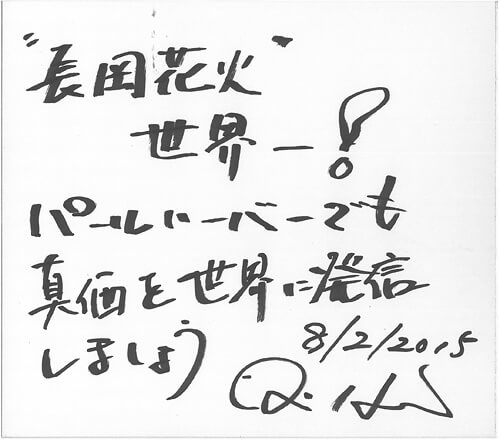 "長岡花火"
世界一!
パールハーバーでも
真価を世界に発信
しましょう
8/2/2015